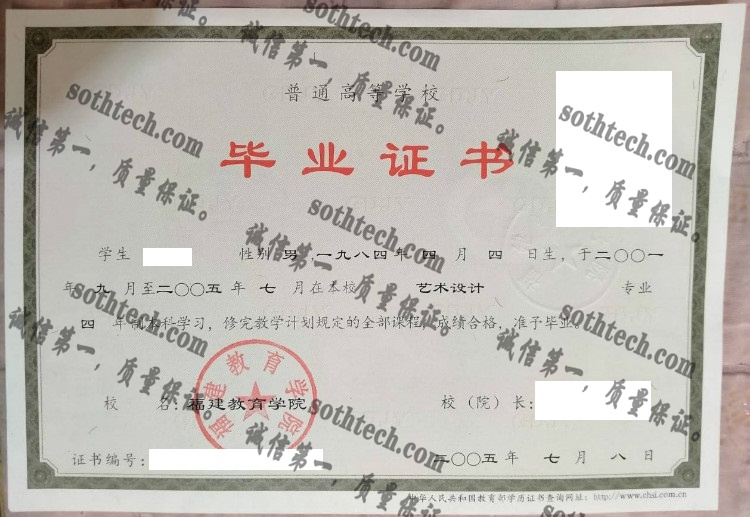 普通高等学校
毕业证书
学生 性别 男，一九八四年 四 月 四 日生，于二〇〇一
年 九 月至二〇〇五年 七 月在本校 艺术设计 专业
四 年制本科学习，修完教学计划规定的全部课程，成绩合格，准予毕业。
校 名：福建教育学院 校（院）长：
福建教育学院
证书编号： 二〇〇五年 七 月 八 日
中华人民共和国教育部学历证书查询网址：http://www.chsi.com.cn
sothtech.com
诚信第一，质量保证。
sothtech.com
诚信第一，质量保证。
sothtech.com
诚信第一，质量保证。
sothtech.com
诚信第一，质量保证。
sothtech.com
诚信第一，质量保证。
sothtech.com
诚信第一，质量保证。
sothtech.com
诚信第一，质量保证。